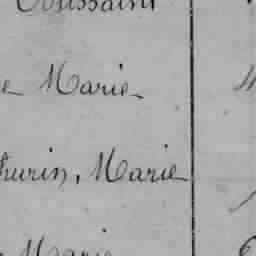 Toussaint
e Marie
hurin, Marie
Marie